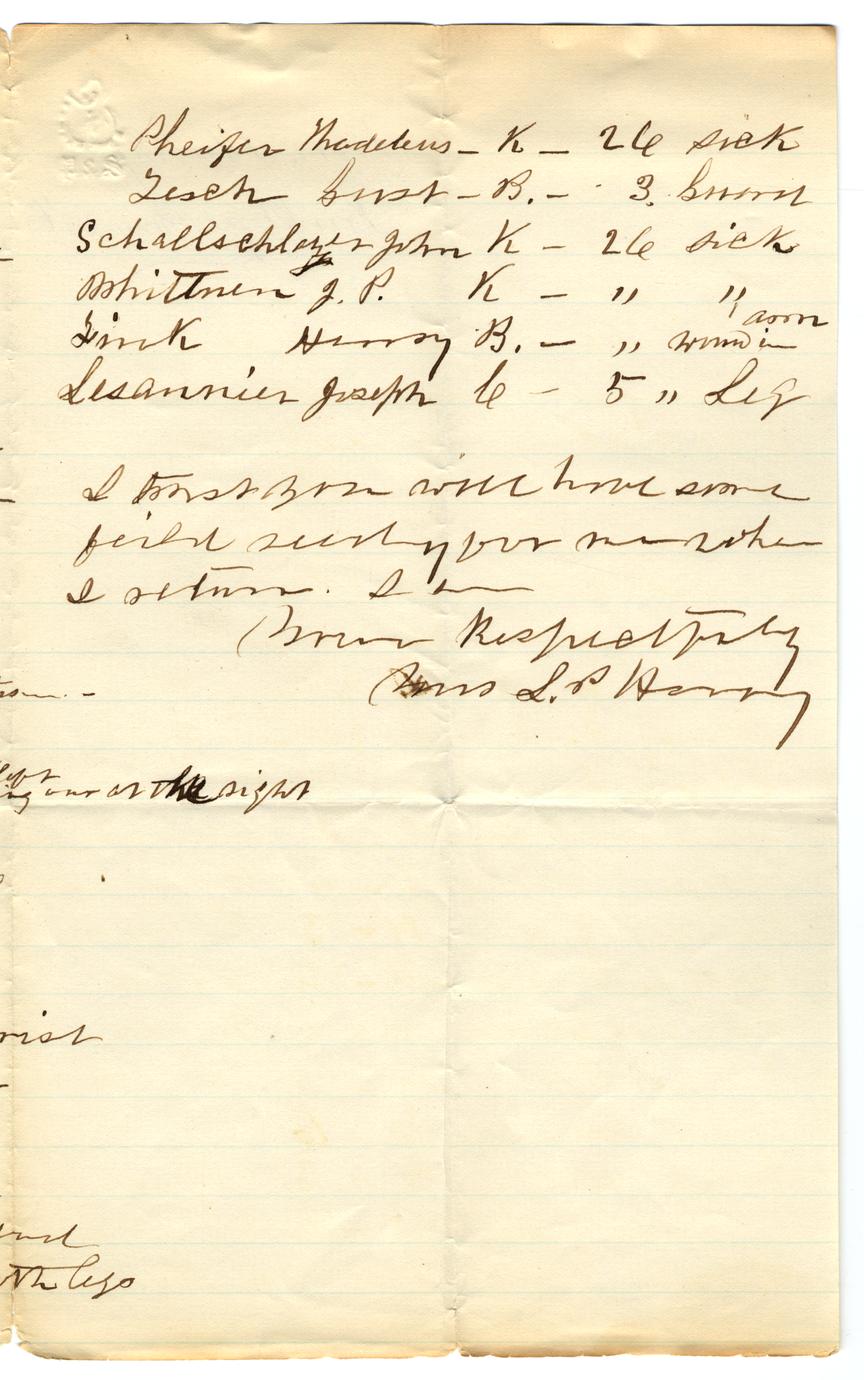 Pheifer Thadeleus – K – 26 sick
Zesch Gust – B. – 3. Guard
Schallschlager John K – 26 sick
Whittnen J. P. K – " "
Zink Henry B. – " wound in arm
Lesannier Joseph C – 5 " Leg
I trust you will have some
for me when
I return. I am
Yours Respectfully
Mrs L. P Harvey
at the right
rist
legs